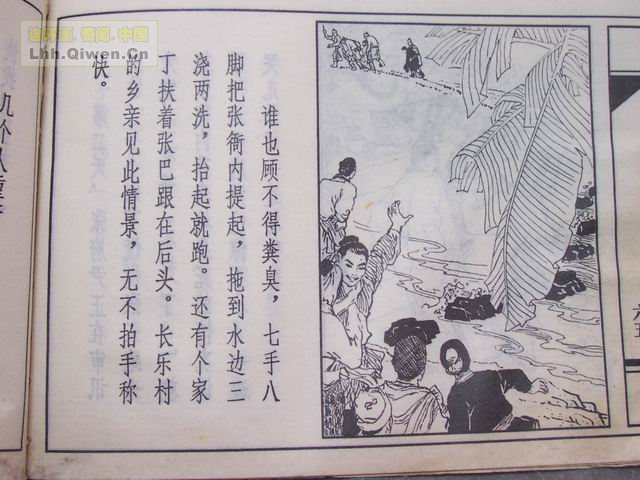 连环画·看阅·中国
Lhh.Qiwen.Cn
谁也顾不得粪臭，七手八
脚把张衙内提起，拖到水边三
浇两洗，抬起就跑。还有个家
丁扶着张巴跟在后头。长乐村
的乡亲见此情景，无不拍手称
快。
几个人